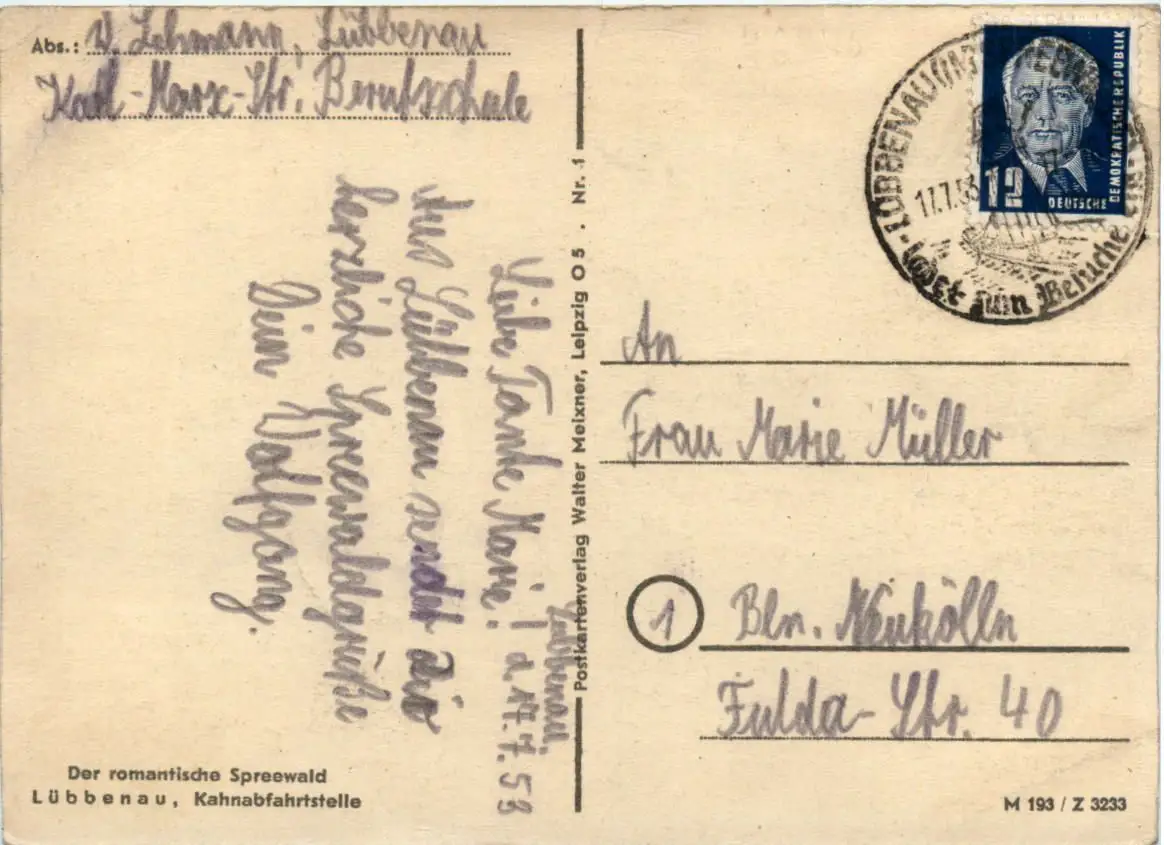 Abs.: W. Lehmann, Lübbenau
Karl-Marx-Str. Berufsschule
Lübbenau,
d. 17.7.53
Liebe Tante Marie!
Aus Lübbenau sendet Dir
herzliche Spreewaldgrüße
Dein Wolfgang.
Der romantische Spreewald
Lübbenau, Kahnabfahrtstelle
Postkartenverlag Walter Meixner, Leipzig O 5 . Nr. 1
LÜBBENAU
17.7.53
Ladet zum Besuche ein
12
DEUTSCHE
DEMOKRATISCHE REPUBLIK
An
Frau Marie Müller
1 Bln. Neukölln
Fulda-Str. 40
M 193 / Z 3233